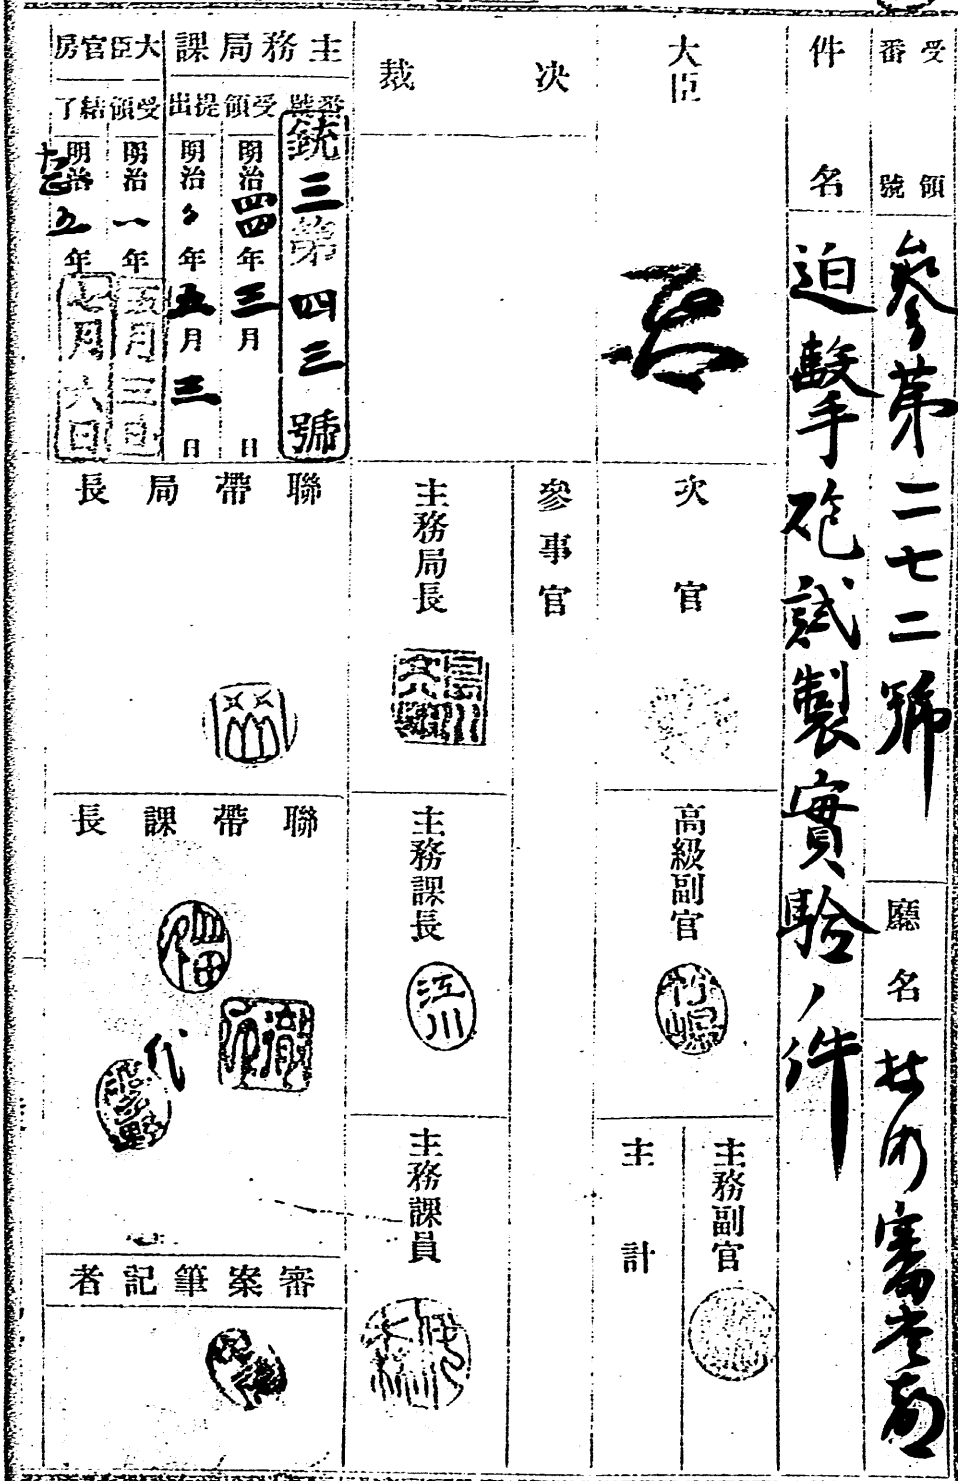 受領番號
參第二七二號
廳名
技術審査部
件名
迫擊砲試製實驗ノ件
大臣
次官
高級副官
主務副官
主計
決裁
參事官
主務局長
主務課長
江川
主務課員
主務局課
番號
銃三第四三號
受領
明治四四年三月 日
提出
明治 年五月三日
大臣官房
受領
明治 一年五月三日
結了
明治 五年七月六日
聯帶局長
聯帶課長
福田
代
審案筆記者